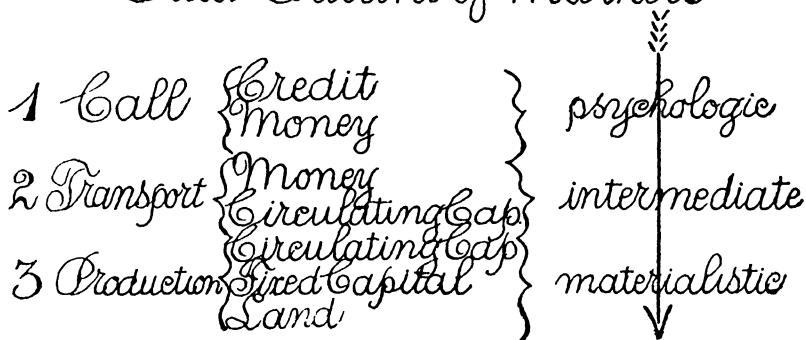 1 Call Credit Money psychologic
2 Transport Money Circulating Cap. intermediate
3 Production Circulating Cap Fixed Capital Land materialistic